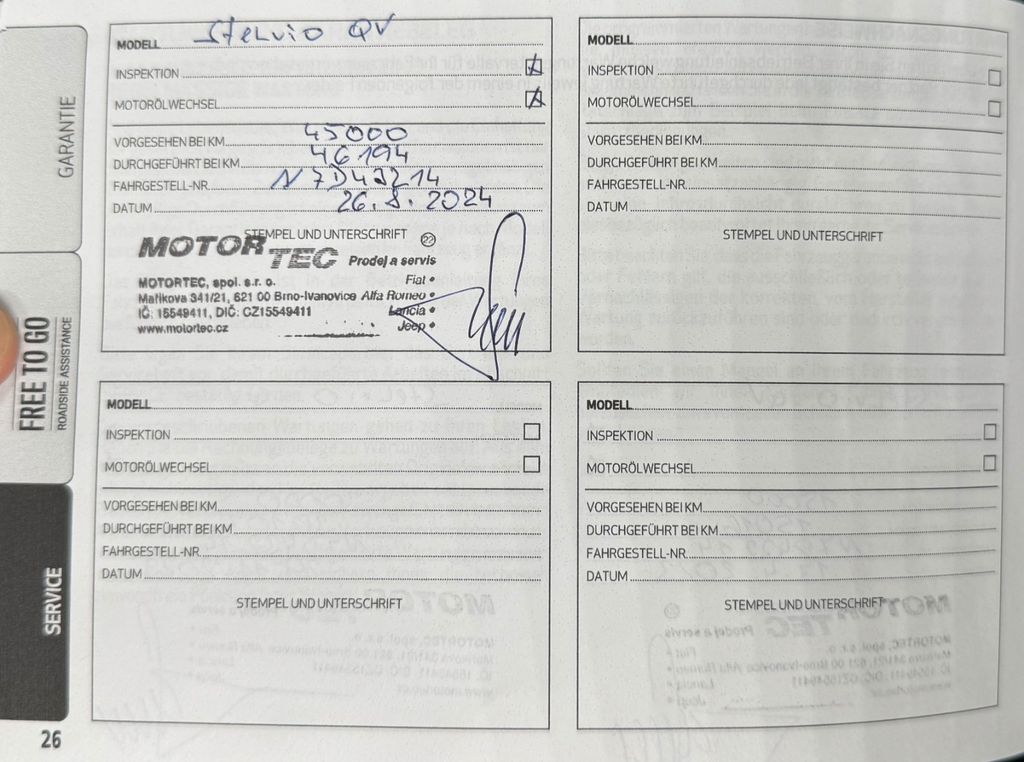 GARANTIE
FREE TO GO
ROADSIDE ASSISTANCE
SERVICE
26
MODELL Stelvio QV
INSPEKTION
MOTORÖLWECHSEL
VORGESEHEN BEI KM 45000
DURCHGEFÜHRT BEI KM 46194
FAHRGESTELL-NR.
DATUM 26.8.2024
STEMPEL UND UNTERSCHRIFT
MOTOR TEC 22
Prodej a servis
MOTORTEC, spol. s.r.o. Fiat •
Maříkova 341/21, 621 00 Brno-Ivanovice Alfa Romeo •
IČ: 15549411, DIČ: CZ15549411 Lancia •
www.motortec.cz Jeep •
MODELL
INSPEKTION
MOTORÖLWECHSEL
VORGESEHEN BEI KM
DURCHGEFÜHRT BEI KM
FAHRGESTELL-NR.
DATUM
STEMPEL UND UNTERSCHRIFT
MODELL
INSPEKTION
MOTORÖLWECHSEL
VORGESEHEN BEI KM
DURCHGEFÜHRT BEI KM
FAHRGESTELL-NR.
DATUM
STEMPEL UND UNTERSCHRIFT
MODELL
INSPEKTION
MOTORÖLWECHSEL
VORGESEHEN BEI KM
DURCHGEFÜHRT BEI KM
FAHRGESTELL-NR.
DATUM
STEMPEL UND UNTERSCHRIFT